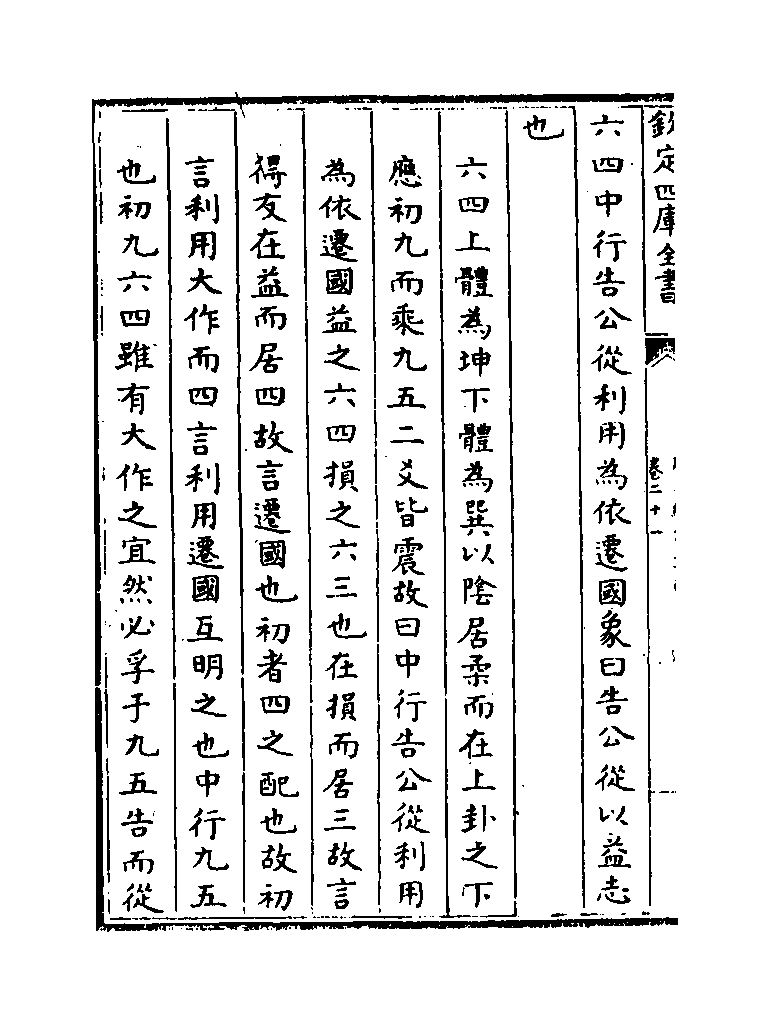 欽定四庫全書
卷二十一
六四中行告公從利用為依遷國象曰告公從以益志
也
六四上體為坤下體為巽以陰居柔而在上卦之下
應初九而乘九五二爻皆震故曰中行告公從利用
為依遷國益之六四損之六三也在損而居三故言
得友在益而居四故言遷國也初者四之配也故初
言利用大作而四言利用遷國互明之也中行九五
也初九六四雖有大作之宜然必孚于九五告而從